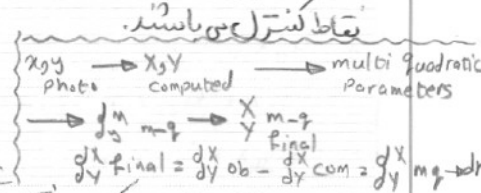 نقاط کنترل می باشند.
x,y photo → X,Y computed → multi quadratic parameters
→ d x y m-q → X Y m-q final
d X Y final = d X Y ob - d X Y com = d X Y mq →